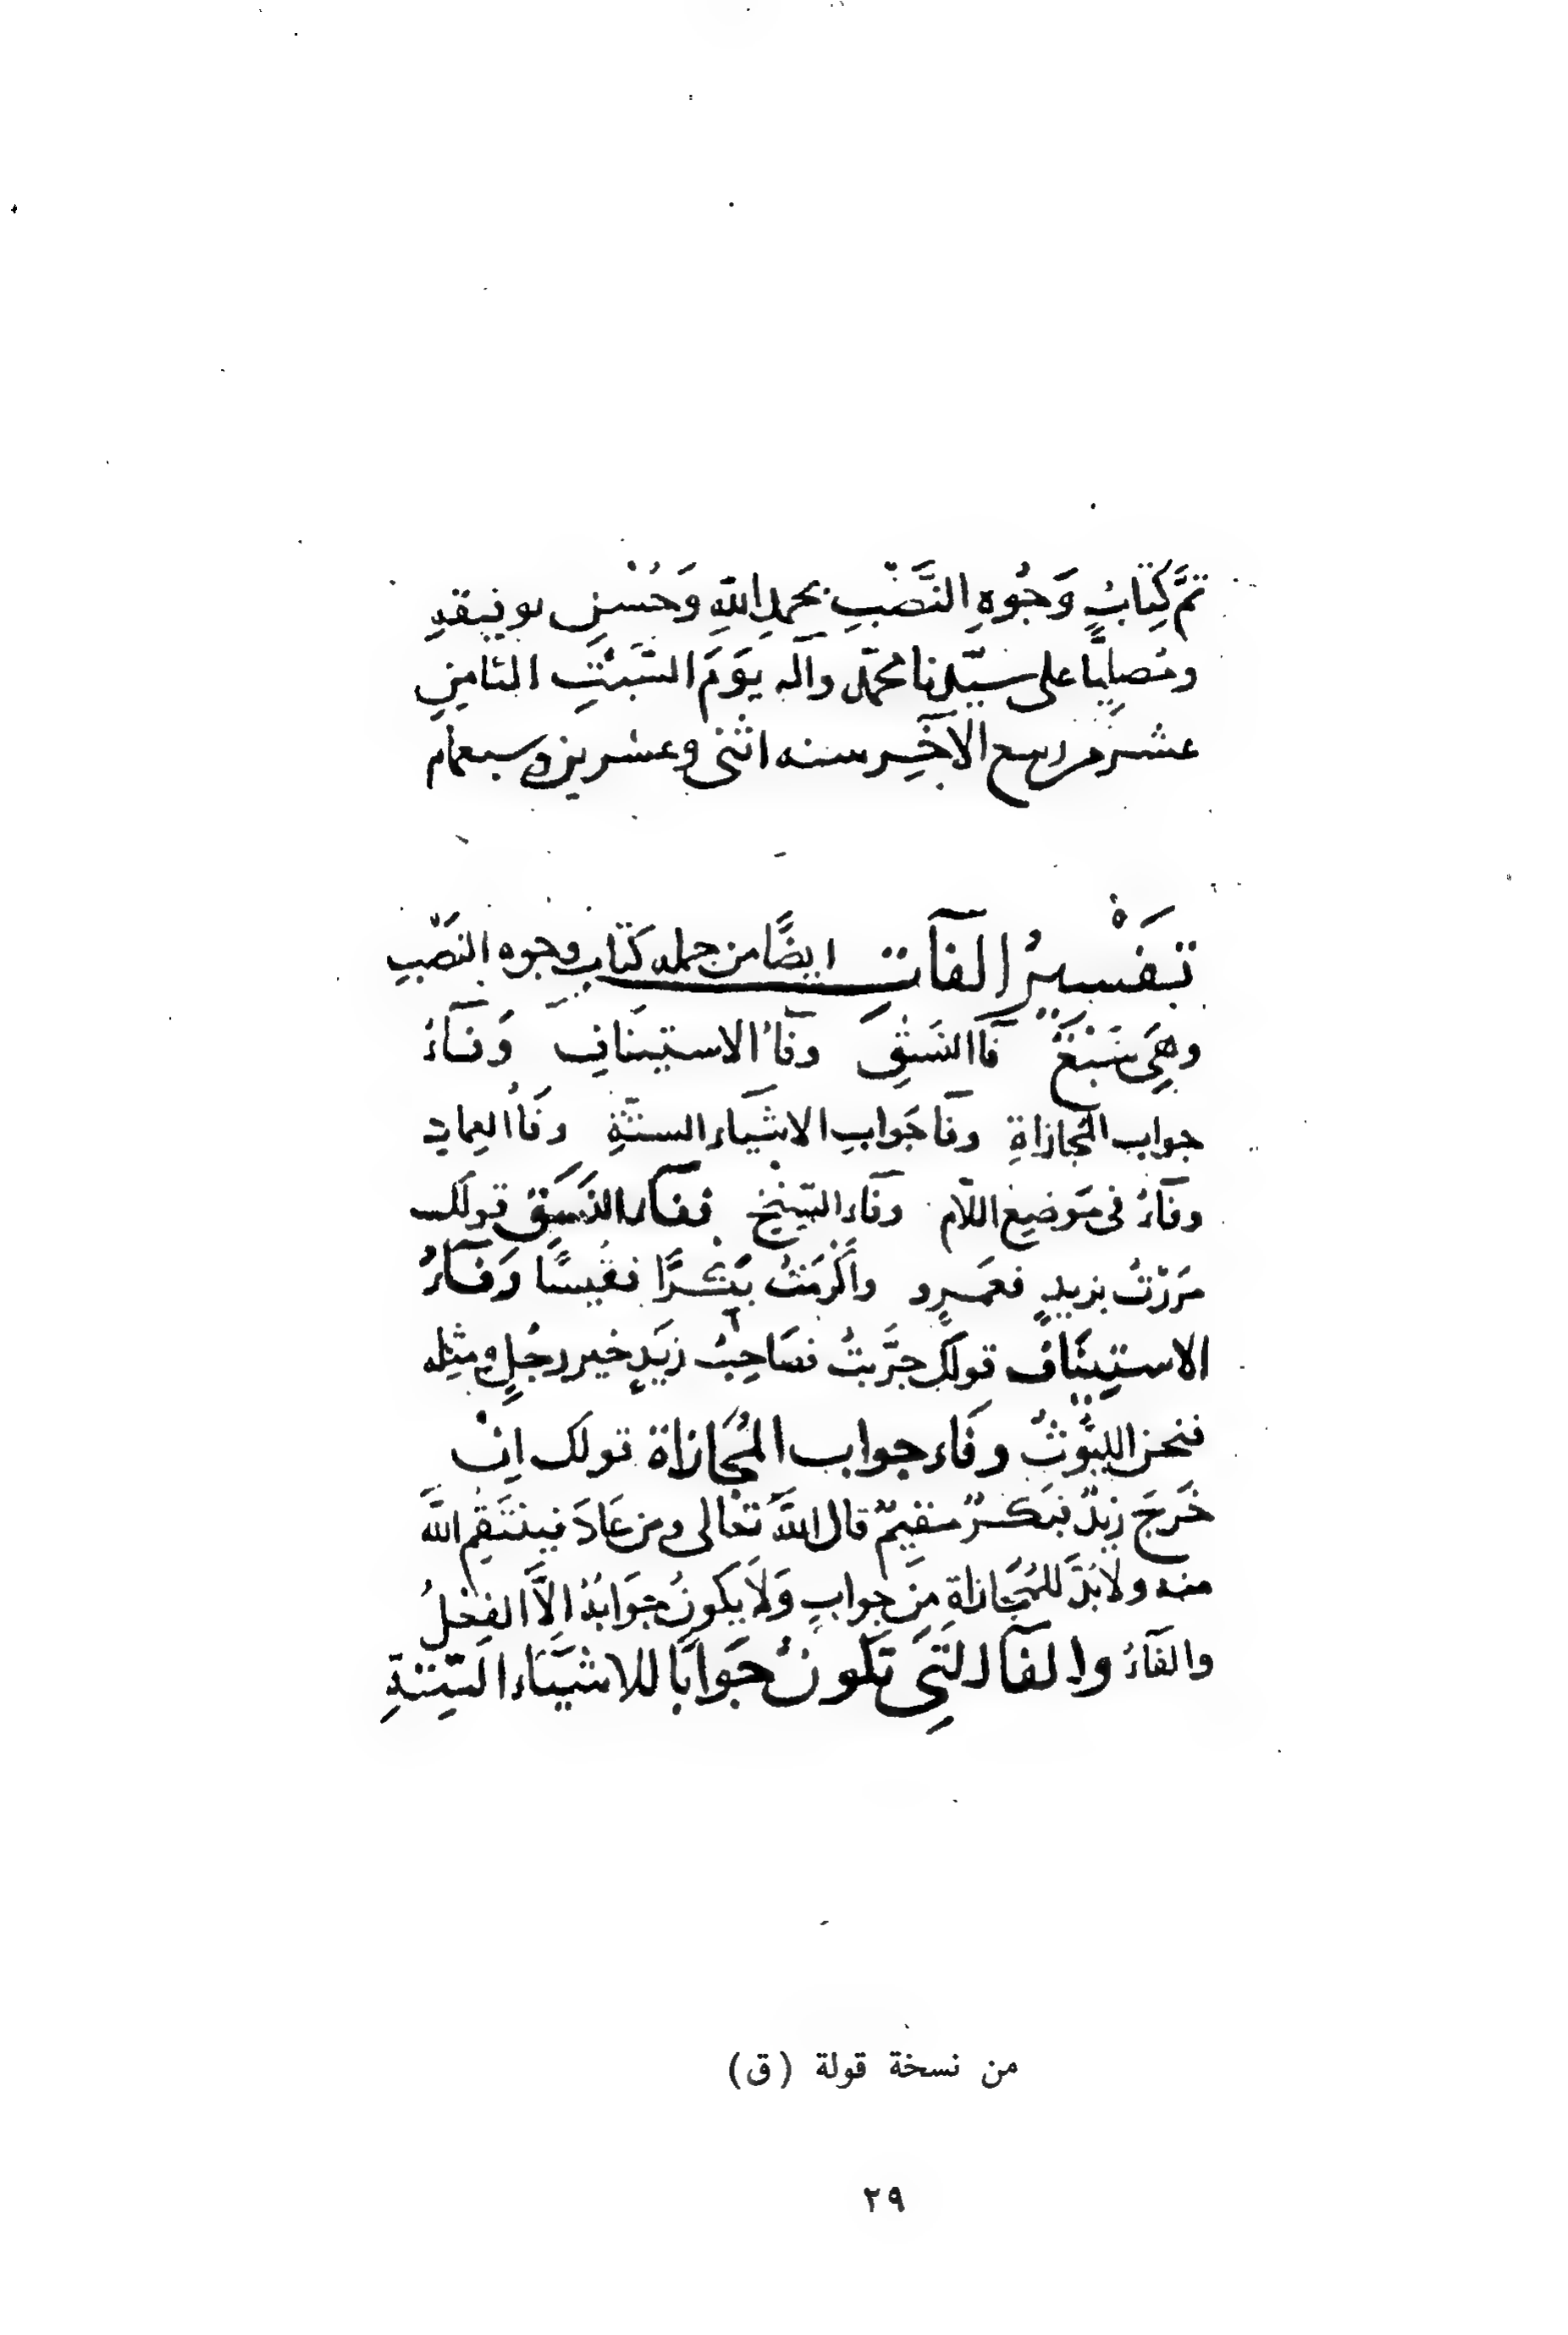 تمَّ كِتَابُ وَجُوهِ النَّصْبِ بحمدِ اللهِ وَحُسْنِ توفيقهِ
ومُصلِيًّا على سيّدنا محمّد وآله يَوَمَ السَّبْتِ الثامنِ
عشر من ربيع الآخِر سنه اثنى وعشرين وسبعمائه
تَفْسيرُ الفآت ايضًا من جمله كتاب وجوه النصْبِ
وهِيَ سَبْعٌ فَاَ النَسَقِ وفَاُ الاستينَافِ وَفَآءُ
جواب المُجازاةِ وفَا جَوابِ الاشيَاءِ الستَّةِ وفَاُ العِمادِ
وفآءُ فى مَوضِعِ اللآم وفَآء السِّنْخِ ففآء النَسَقِ قولَك
مَرَرْتُ بزيدٍ فعَمرٍو واَكْرَمْتُ بَشْرًا فقَيسًا وَفَآءُ
الاستينَاف قولَك جَرَّبتُ فصَاحِبُ زيَدٍ خير رجُلٍ ومثِله
فنحن الليُوثُ وفَاء جواب المُجازاة قولَك اِنْ
خَرَجَ زيدٌ فبَكرٌ مقيمٌ قال اللهُ تعَالى ومن عَادَ فينتَقِم اللهُ
منه ولابُدَّ للمُجَازاةِ مِن جوابٍ وَلَا يكونُ جَوَابُهُ اِلَّا الفِعْلُ
والفَآءُ والفآ التِى تكونُ جَوَابًا للاشيَاء السِّتَّةِ
من نسخة قولة (ق)
٢٩